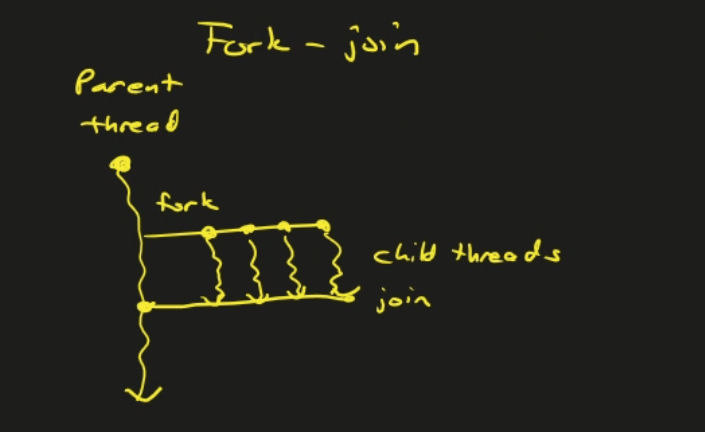 Fork - join
Parent
thread
fork
child threads
join